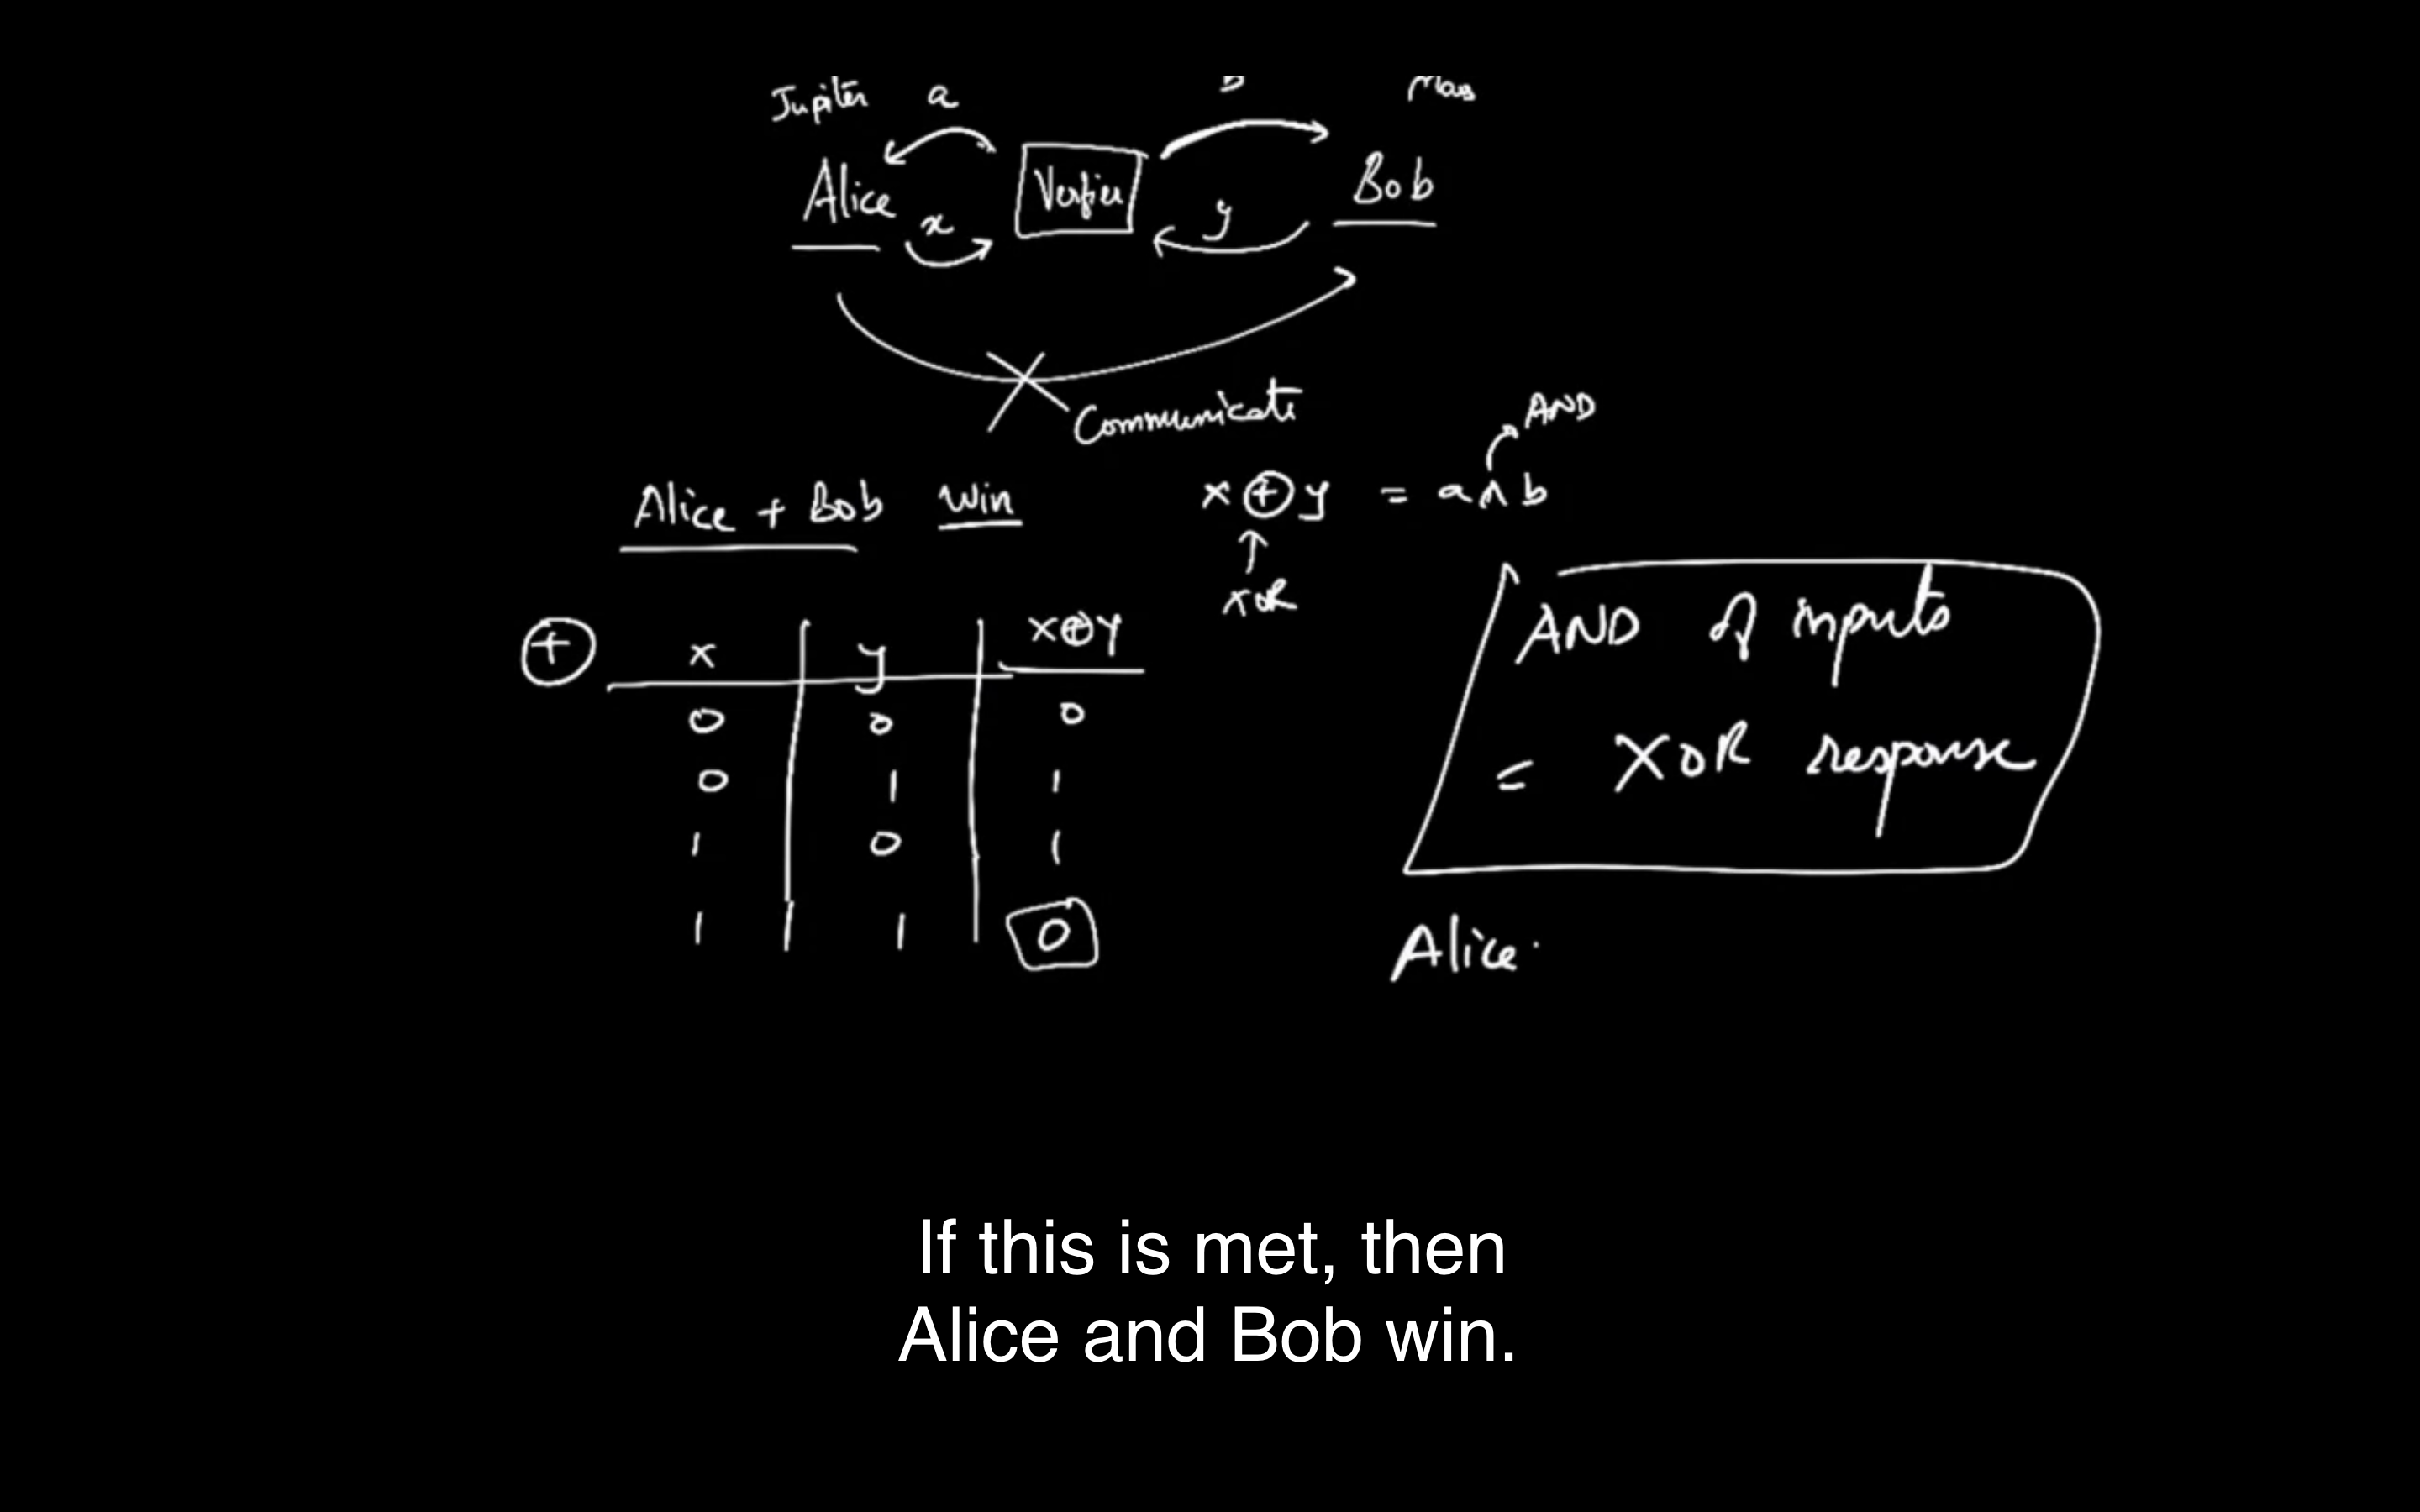 Jupiter a B Mars
Alice Verfier Bob
x y
Communicate
AND
Alice + Bob Win x ⊕ y = a ∧ b
XOR
⊕ x y x⊕y
0 0 0
0 1 1
1 0 1
1 1 0
AND of inputs
= XOR response
Alice
If this is met, then
Alice and Bob win.